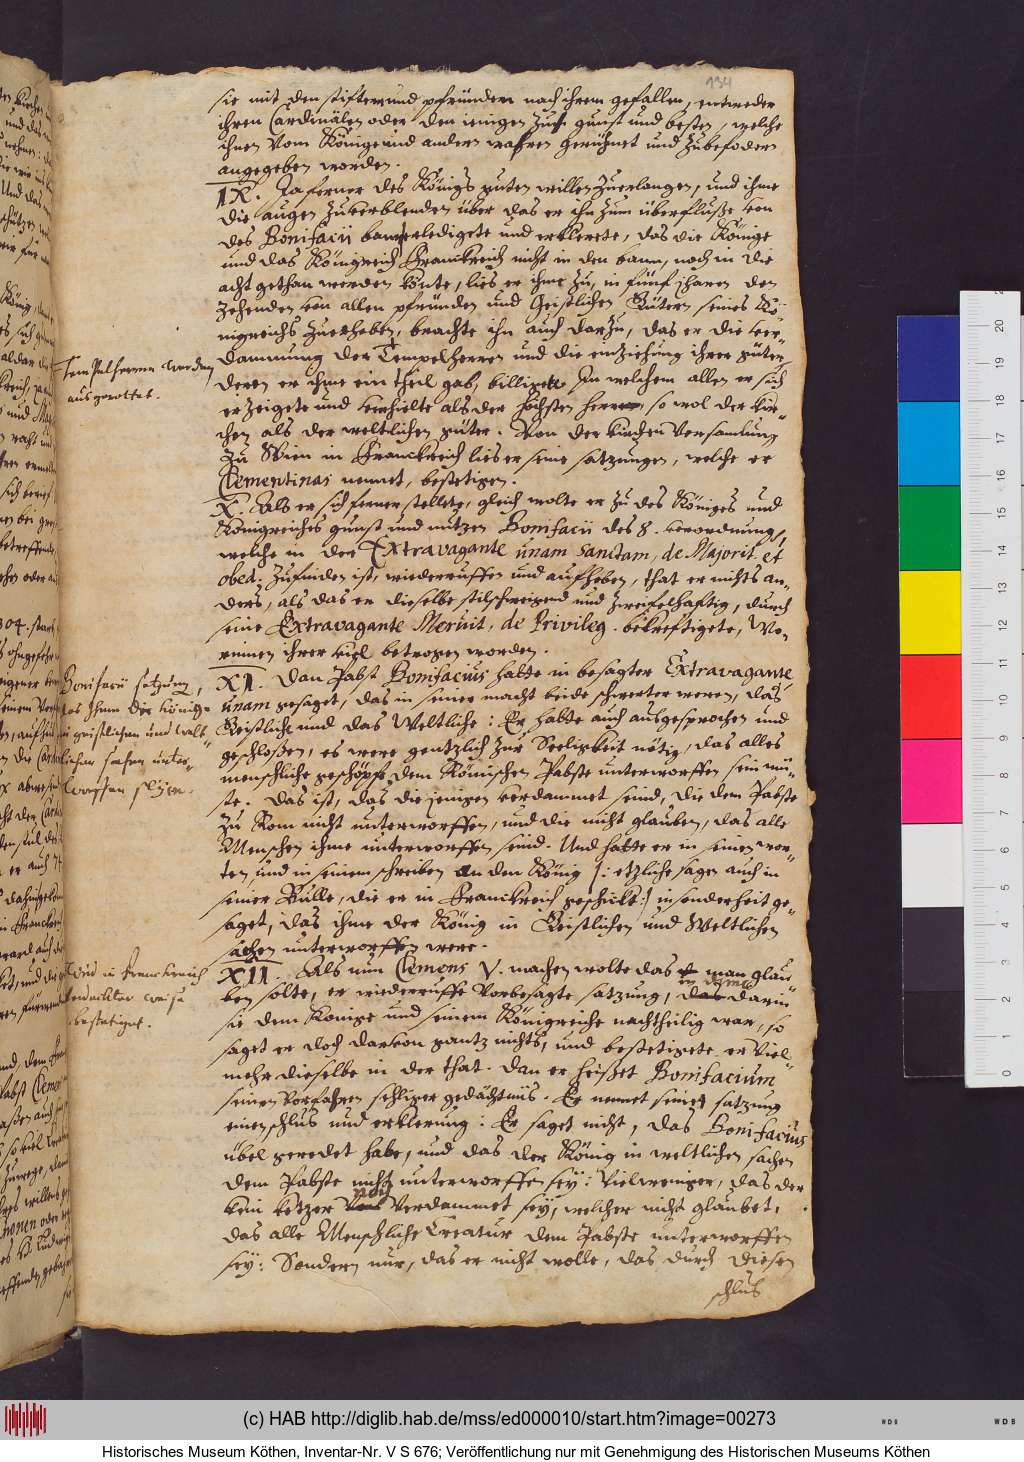 134
sie mit den stifter und pfründen nach ihrem gefallen, entweder
ihren Cardinälen oder den ienigen zur gunst und besten, welche
ihnen vom Könige und andern wahren gerühmet und zubefodern
angegeben worden.
IX. Ja ferner des Königs guten willen zuerlangen, und ihme
die augen zuverblenden über das er ihn zum überflusse von
des Bonifacii bann erledigete und erklerete, das die Könige
und das Königreich Franckreich nicht in den bann, noch in die
acht gethan werden könte, lies er ihme zu, in fünf jharen den
zehenden von allen pfründen und Geistlichen Gütern seines Kö-
nigreichs zuerheben, brachte ihn auch darzu, das er die ver-
damnung der Tempelherren und die entziehung ihrer güter,
deren er ihme ein theil gab, billigete, In welchem allen er sich
erzeigete und verhielte als der höchsten herr, so wol der kir-
chen als der weltlichen güter. Von der kirchen versamlung
zu Wien in Franckreich lies er seine satzungen, welche er
Clementinas nennet, bestetigen.
X. Als er sich ferner stellete, gleich wolte er zu des Königes und
Königreiches gunst und nutzen Bonifacii des 8. verordnung,
welche in der Extravagante unam sanctam, de Majorit. et
obed. zufinden ist, wiederruffen und aufheben, that er nichts an-
ders, als das er dieselbe stilschweigend und zweifelhaftig, durch
seine Extravagante Meruit, de Privileg. bekreftigete, Wo-
rinnen ihrer viel betrogen worden.
XI. Dan Pabst Bonifacius hatte in besagter Extravagante
unam gesaget, das in seiner macht beide schwerter weren, das
Geistliche und das Weltliche: Er hatte auch ausgesprochen und
geschloßen, es were gentzlich zur Seeligkeit nötig, das alles
menschliche geschöpfe dem Römischen Pabste unterworffen sein mü-
ste. Das ist, das die jenigen verdammet seind, die dem Pabste
zu Rom nicht unterworffen, und die nicht glauben, das alle
Menschen ihme unterworffen seind. Und hatte er in seinen wor-
ten, und in seinem schreiben an den König /: etzliche sagen auch in
seiner Bulle, die er in Franckreich geschickt :/ in sonderheit ge-
saget, das ihme der König in Geistlichen und Weltlichen
sachen unterworffen were.
XII. Als nun Clemens V. machen wolte das man glau-
ben solte, er wiederruffe vorbesagte satzung, in deme darin
sie dem Könige und seinem Königreiche nachtheilig war, so
saget er doch darvon gantz nichts, und bestetigete er viel-
mehr dieselbe in der that. Dan er heißet Bonifacium
seinen vorfahren seliger gedächtnis. Er nennet seine satzung
einen schlus und erklerung: Er saget nicht, das Bonifacius
übel geredet habe, und das der König in weltlichen sachen
dem Pabste nicht unterworffen sey: Vielweniger, das der
kein ketzer noch verdammet sey, welcher nicht glaubet,
das alle Menschliche Creatur dem Pabste unterworffen
sey: Sondern nur, das er nicht wolle, das durch diesen
schlus
Tempelherren werden
ausgerottet.
Bonifacii satzung,
das Ihme die Könige
in geistlichen und welt-
lichen sachen unter-
worffen seyen.
Wird in Franckreich
verdeckter weise
bestetiget.
(c) HAB http://diglib.hab.de/mss/ed000010/start.htm?image=00273
Historisches Museum Köthen, Inventar-Nr. V S 676; Veröffentlichung nur mit Genehmigung des Historischen Museums Köthen